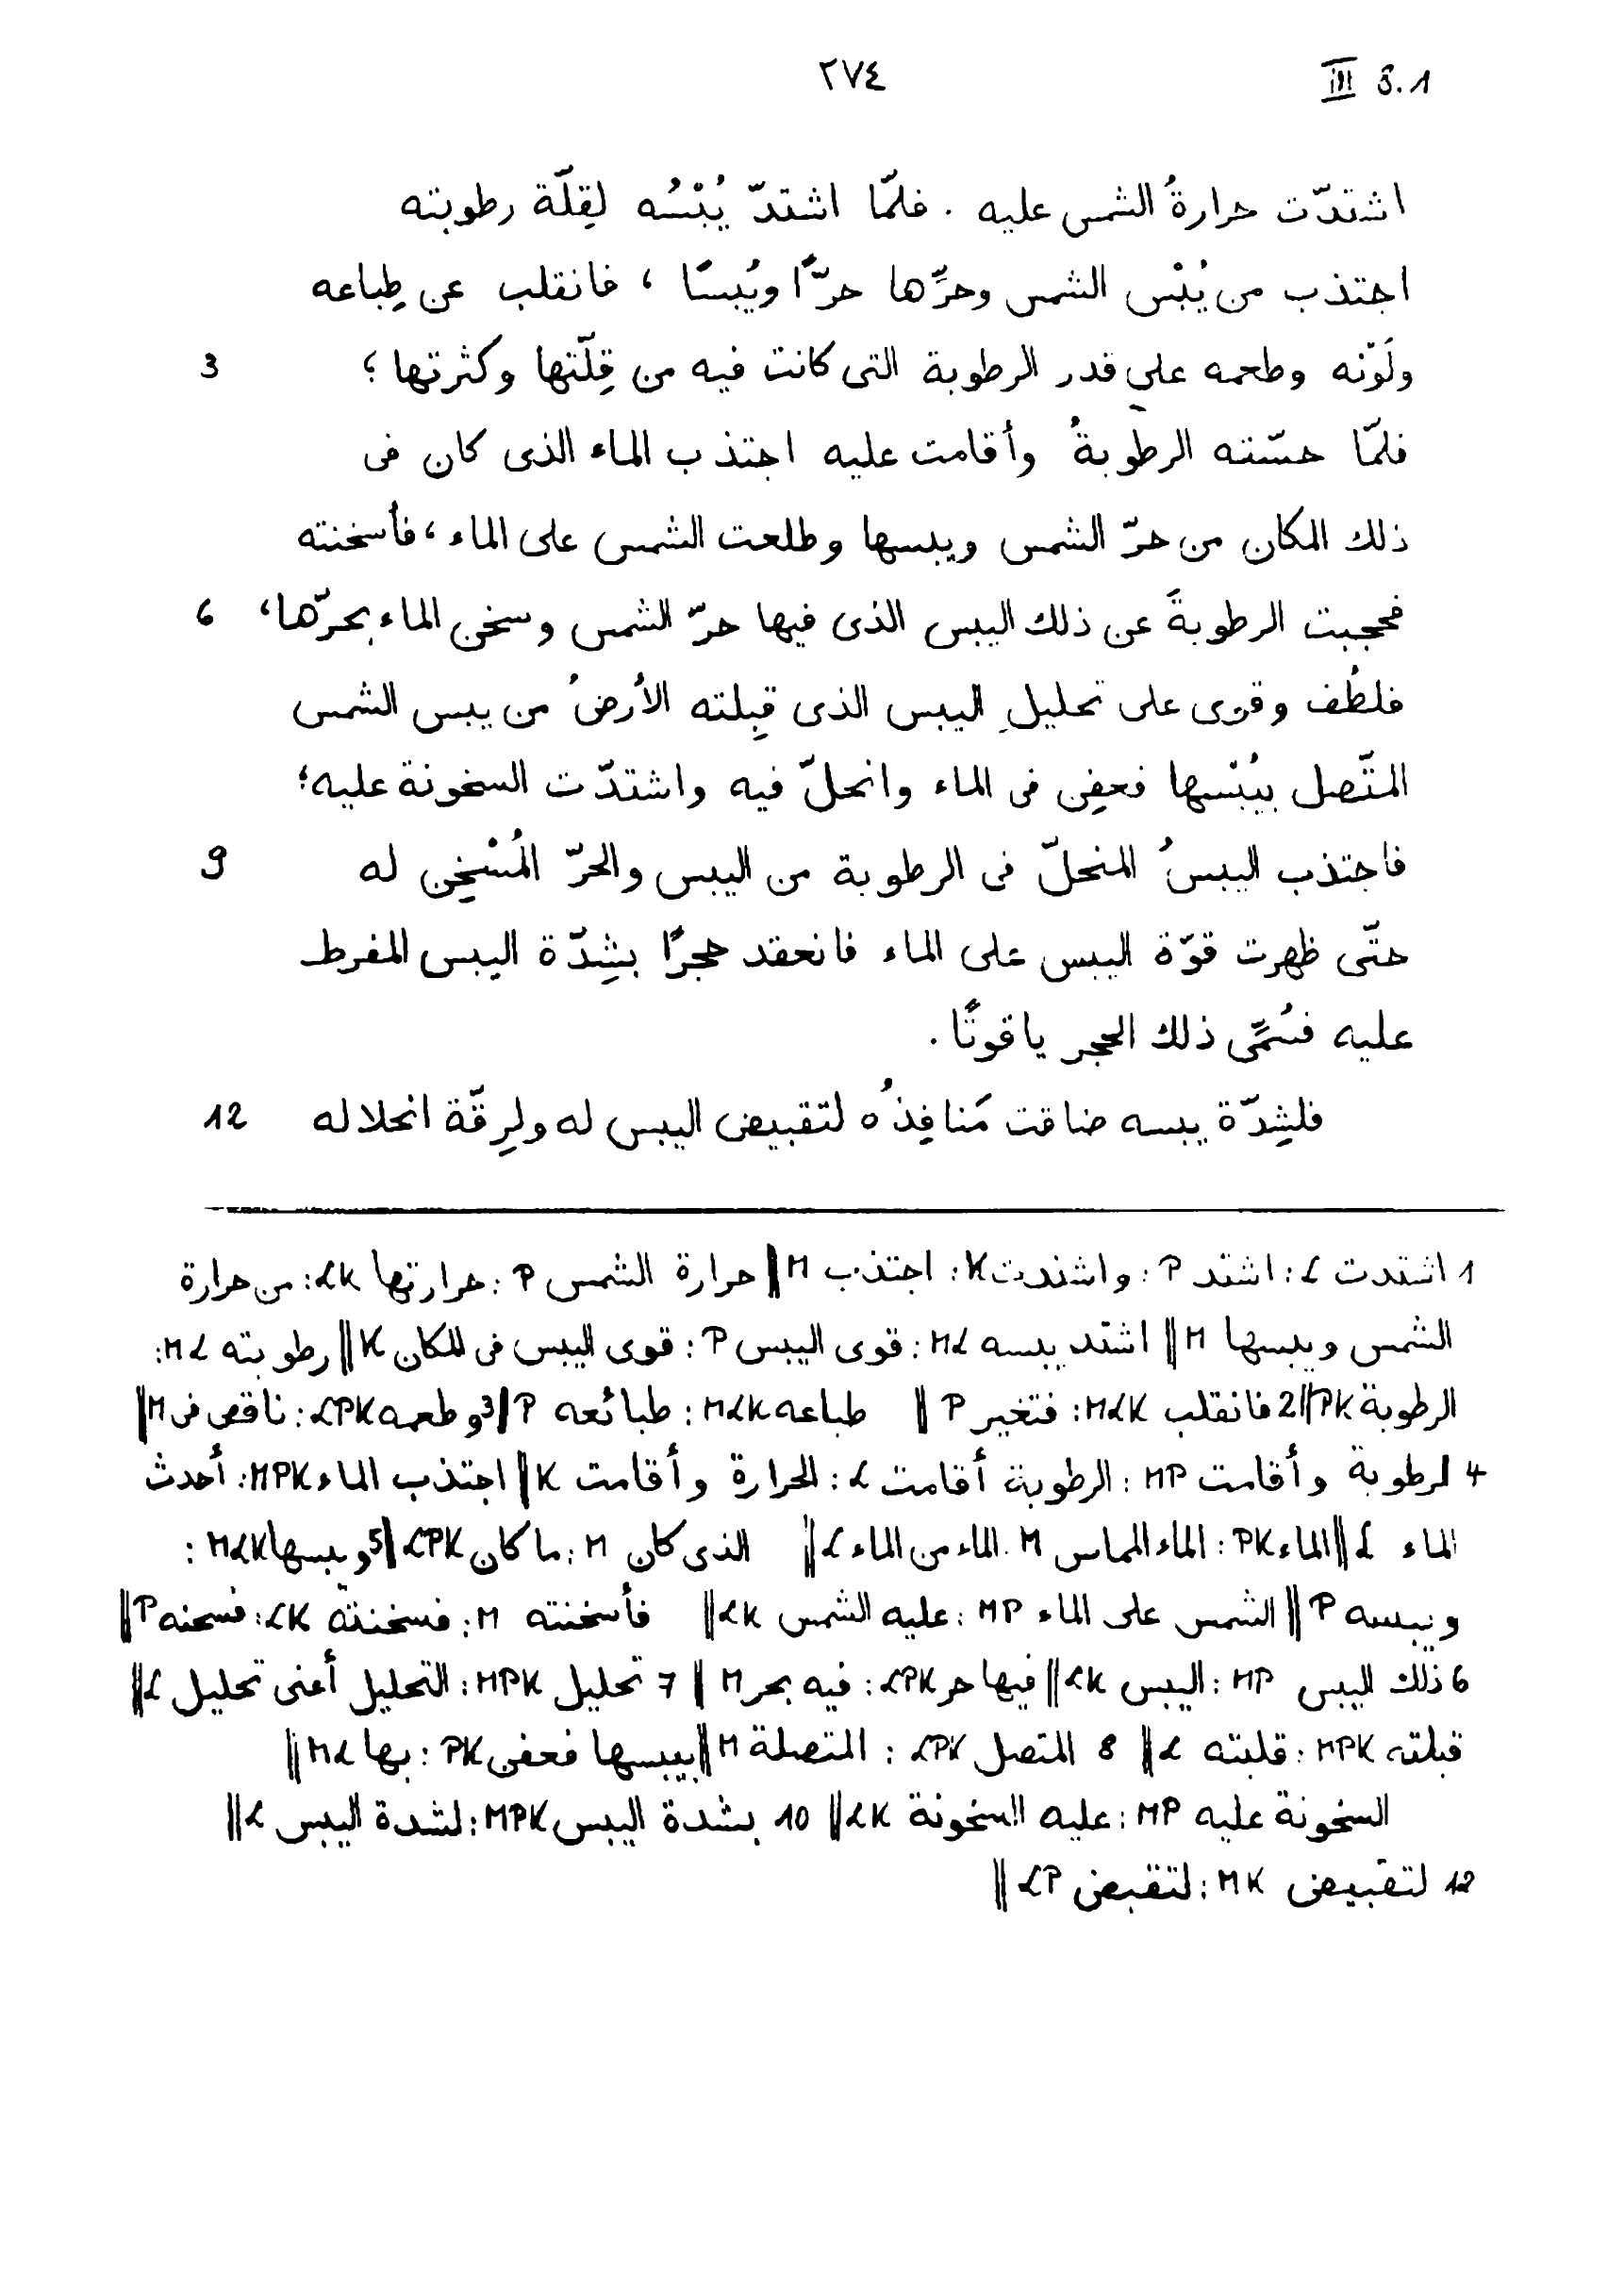 ٢٧٤ III 3.1
اشتدّت حرارةُ الشمس عليه . فلمّا اشتدّ يُبْسُه لقِلّة رطوبته
اجتذب من يُبْس الشمس وحرِّها حرًّا ويُبسًا ، فانقلب عن طِباعه
ولَوْنه وطعمه على قدر الرطوبة التى كانت فيه من قِلّتها وكثرتها ؛ 3
فلمّا حسّته الرطوبةُ وأقامت عليه اجتذب الماء الذى كان فى
ذلك المكان من حرّ الشمس ويبسها وطلعت الشمس على الماء ، فأسخنته
فحجبت الرطوبةَ عن ذلك اليبس الذى فيها حرّ الشمس وسخن الماء بحرّها ، 6
فلطُف وقوى على تحليلِ اليبس الذى قبِلته الأرضُ من يبس الشمس
المتّصل بيُبْسها فعفِن فى الماء وانحلّ فيه واشتدّت السخونة عليه ؛
فاجتذب اليبسُ المنحلّ فى الرطوبة من اليبس والحرّ المُسْخِن له 9
حتّى ظهرت قوّة اليبس على الماء فانعقد حجرًا بشِدّة اليبس المفرط
عليه فسُمّى ذلك الحجر ياقوتًا .
فلشِدّة يبسه ضاقت مَنافِذُه لتقبيض اليبس له ولرِقّة انحلاله 12
1 اشتدت L : اشتد P : واشتدت K : اجتذب M || حرارة الشمس P : حرارتها LK : من حرارة
الشمس ويبسها M || اشتد يبسه ML : قوى اليبس P : قوى اليبس فى المكان K || رطوبته ML :
الرطوبة PK || 2 فانقلب MLK : فتغير P || طباعه MLK : طبائعه P || 3 وطعمه LPK : ناقص فى M ||
4 الرطوبة وأقامت MP : الرطوبة أقامت L : الحرارة وأقامت K || اجتذب الماء MPK : أحدث
الماء L || الماء PK : الماء المماس M : الماء من الماء L || الذى كان M : ما كان LPK || 5 ويبسها MLK :
ويبسه P || الشمس على الماء MP : عليه الشمس LK || فأسخنته M : فسخنته LK : فسحنه P ||
6 ذلك اليبس MP : اليبس LK || فيها حر LPK : فيه بحر M || 7 تحليل MPK : التحليل أعنى تحليل L ||
قبلته MPK : قلبته L || 8 المتصل LPK : المتصلة M || بيبسها فعفن PK : بها ML ||
السخونة عليه MP : عليه السخونة LK || 10 بشدة اليبس MPK : لشدة اليبس L ||
12 لتقبيض MK : لتقبض LP ||